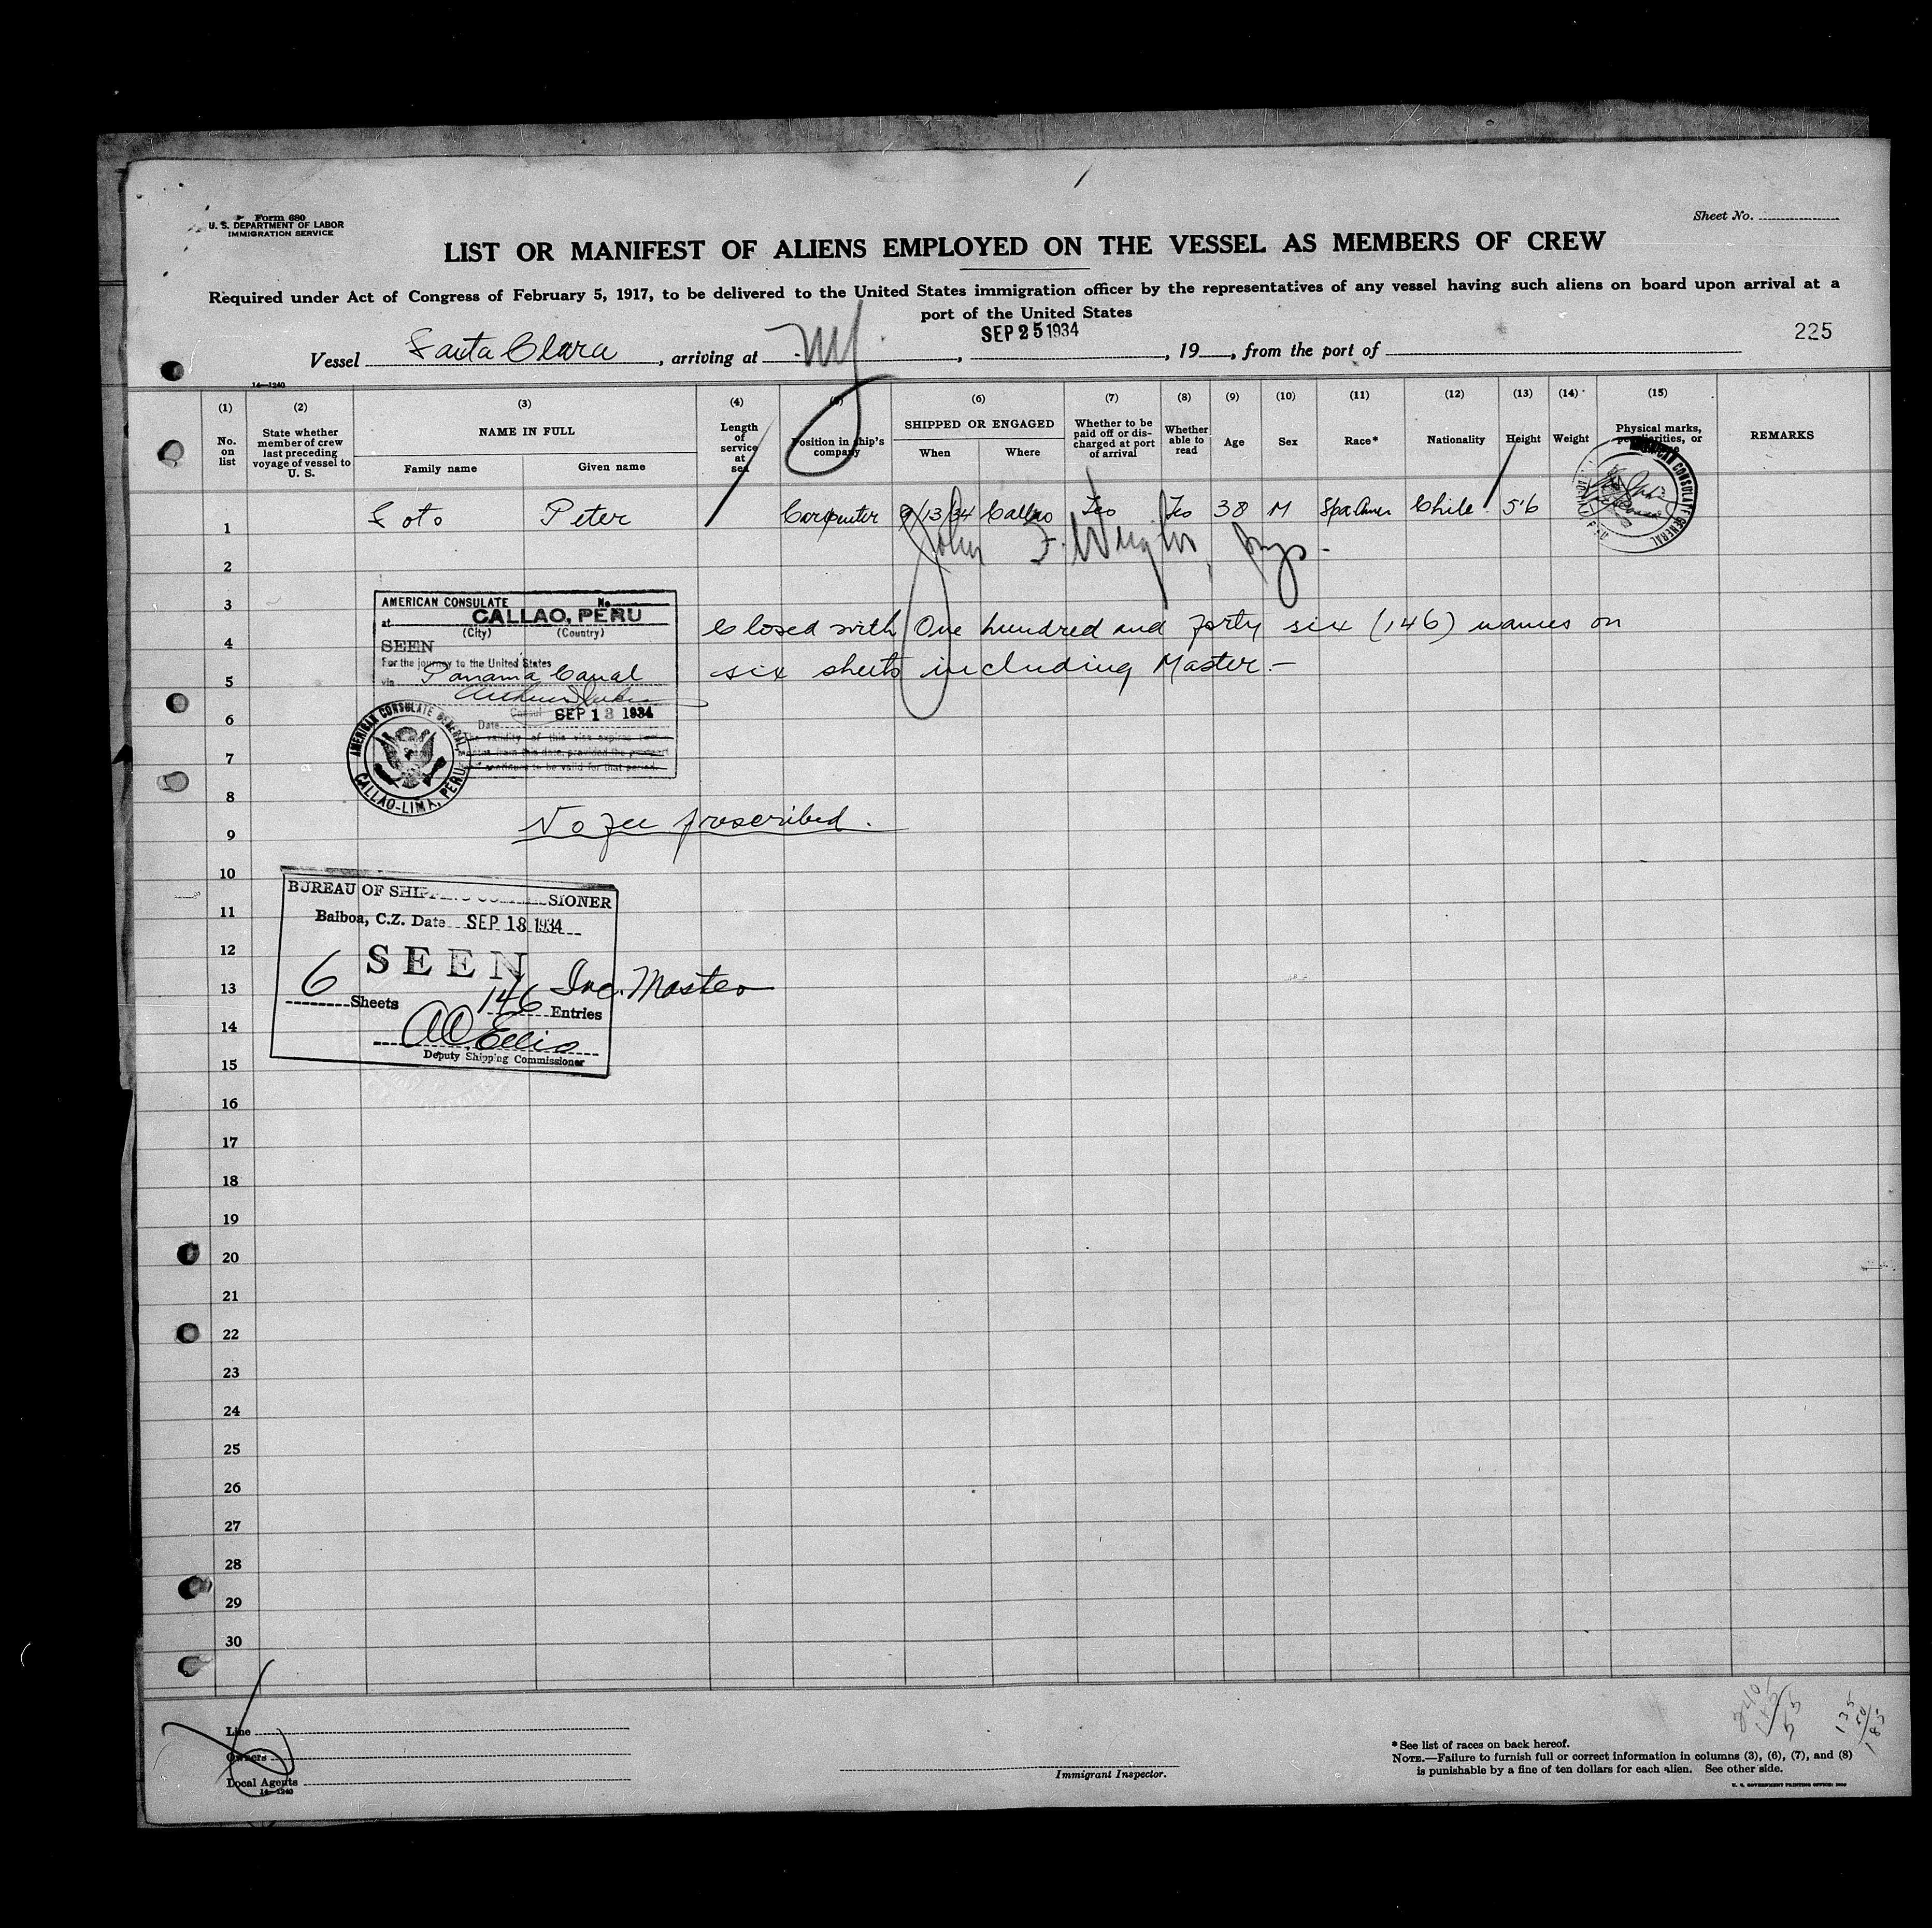 Form 680
U. S. DEPARTMENT OF LABOR
IMMIGRATION SERVICE
Sheet No.
LIST OR MANIFEST OF ALIENS EMPLOYED ON THE VESSEL AS MEMBERS OF CREW
Required under Act of Congress of February 5, 1917, to be delivered to the United States immigration officer by the representatives of any vessel having such aliens on board upon arrival at a
port of the United States
Vessel Santa Clara, arriving at NY, SEP 25 1934, 19, from the port of
225
14—1240
(1) (2) (3) (4) (5) (6) (7) (8) (9) (10) (11) (12) (13) (14) (15)
No. on list
State whether member of crew last preceding voyage of vessel to U. S.
NAME IN FULL
Family name Given name
Length of service at sea
Position in ship's company
SHIPPED OR ENGAGED
When Where
Whether to be paid off or discharged at port of arrival
Whether able to read
Age
Sex
Race*
Nationality
Height
Weight
Physical marks, peculiarities, or
REMARKS
1 Soto Peter Carpenter 9/13/34 Callao Yes Yes 38 M Spa Amer Chile 5'6
John F.
2
3
4
5
6
7
8
9
10
11
12
13
14
15
16
17
18
19
20
21
22
23
24
25
26
27
28
29
30
AMERICAN CONSULATE No.
at CALLAO, PERU
(City) (Country)
SEEN
For the journey to the United States
via Panama Canal
Consul
Date SEP 13 1934
The validity of this visa expires
months from this date, provided the passport
continues to be valid for that period.
AMERICAN CONSULATE GENERAL
CALLAO-LIMA, PERU
AMERICAN CONSULATE GENERAL
Closed with One hundred and forty six (146) names on
six sheets including Master.-
No fee prescribed.
BUREAU OF SHIPPING COMMISSIONER
Balboa, C.Z. Date SEP 18 1934
SEEN
6 Sheets 146 Entries Inc. Master
Deputy Shipping Commissioner
Line
Owners
Local Agents
14—1240
Immigrant Inspector.
* See list of races on back hereof.
NOTE.—Failure to furnish full or correct information in columns (3), (6), (7), and (8)
is punishable by a fine of ten dollars for each alien. See other side.